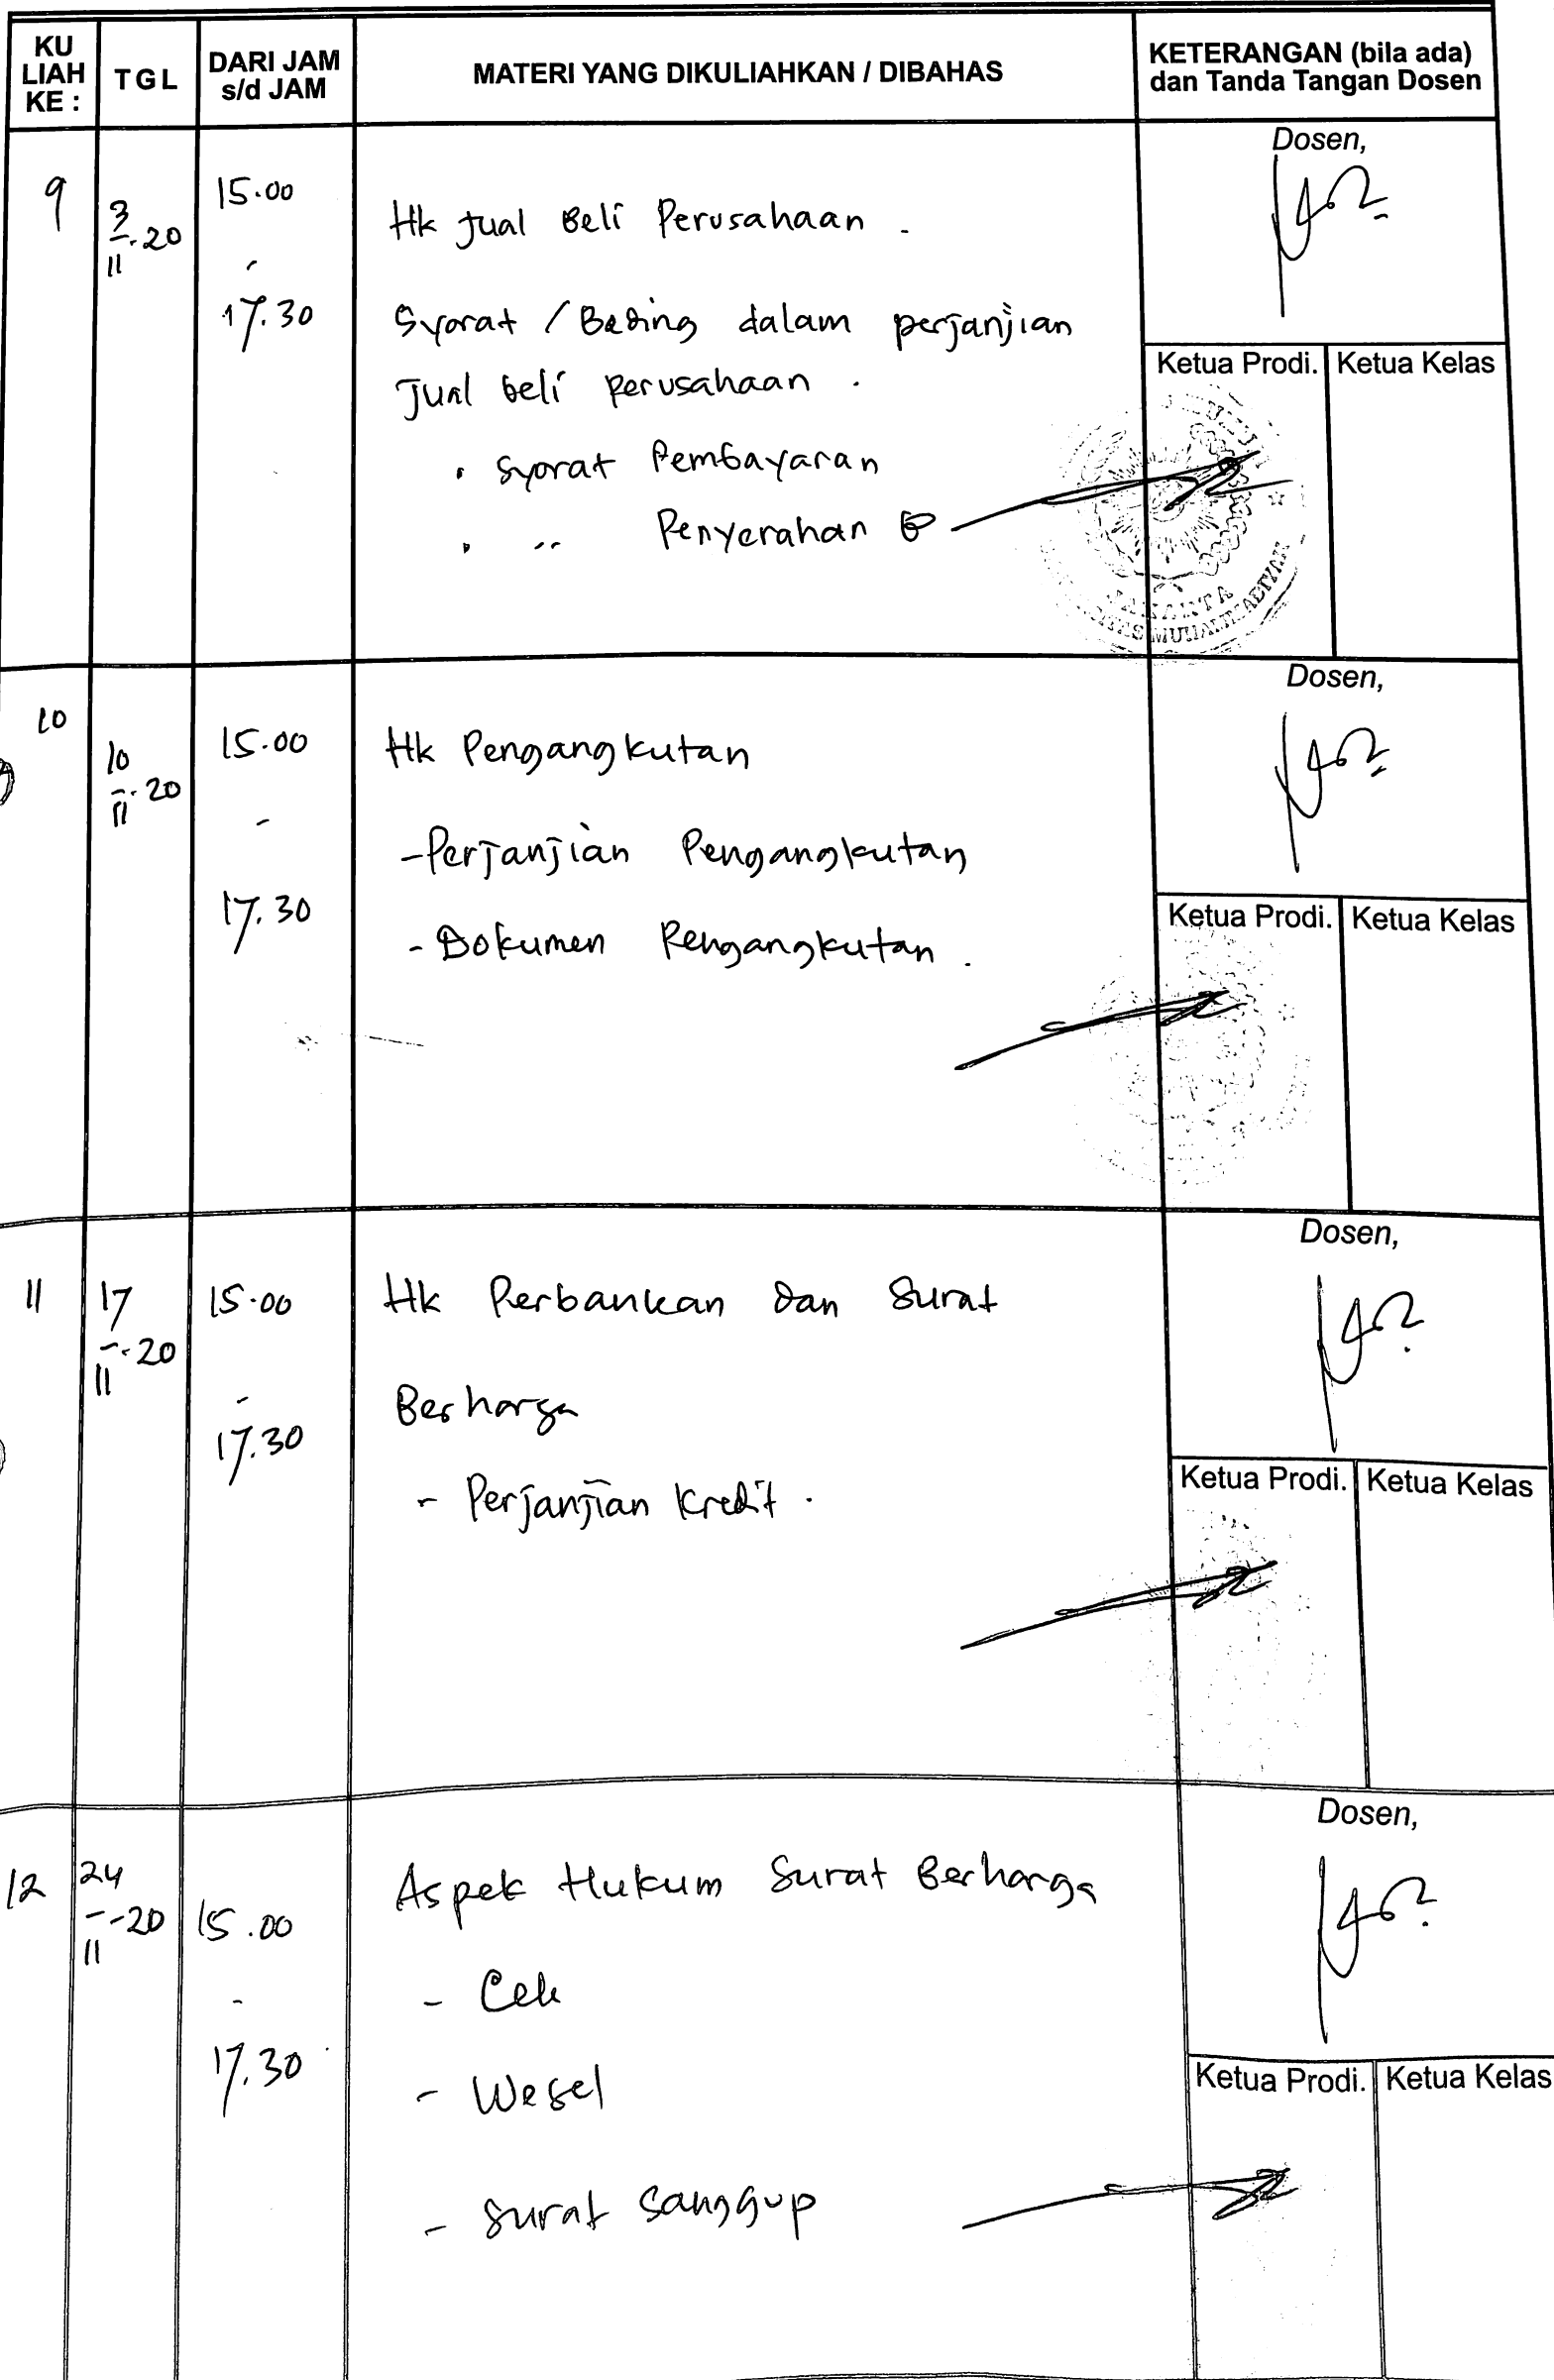 KU LIAH KE :
TGL
DARI JAM s/d JAM
MATERI YANG DIKULIAHKAN / DIBAHAS
KETERANGAN (bila ada) dan Tanda Tangan Dosen
9
3/11-20
15.00
-
17.30
Hk Jual Beli Perusahaan .
Syarat / Beding dalam perjanjian
Jual beli perusahaan .
• Syarat Pembayaran
• ,, Penyerahan
Dosen,
Ketua Prodi.
Ketua Kelas
10
10/11-20
15.00
-
17.30
Hk Pengangkutan
- Perjanjian Pengangkutan
- Dokumen Pengangkutan .
Dosen,
Ketua Prodi.
Ketua Kelas
11
17/11-20
15.00
-
17.30
Hk Perbankan dan Surat
Berharga
- Perjanjian Kredit .
Dosen,
Ketua Prodi.
Ketua Kelas
12
24/11-20
15.00
-
17.30
Aspek Hukum Surat Berharga
- Cek
- Wesel
- Surat Sanggup
Dosen,
Ketua Prodi.
Ketua Kelas